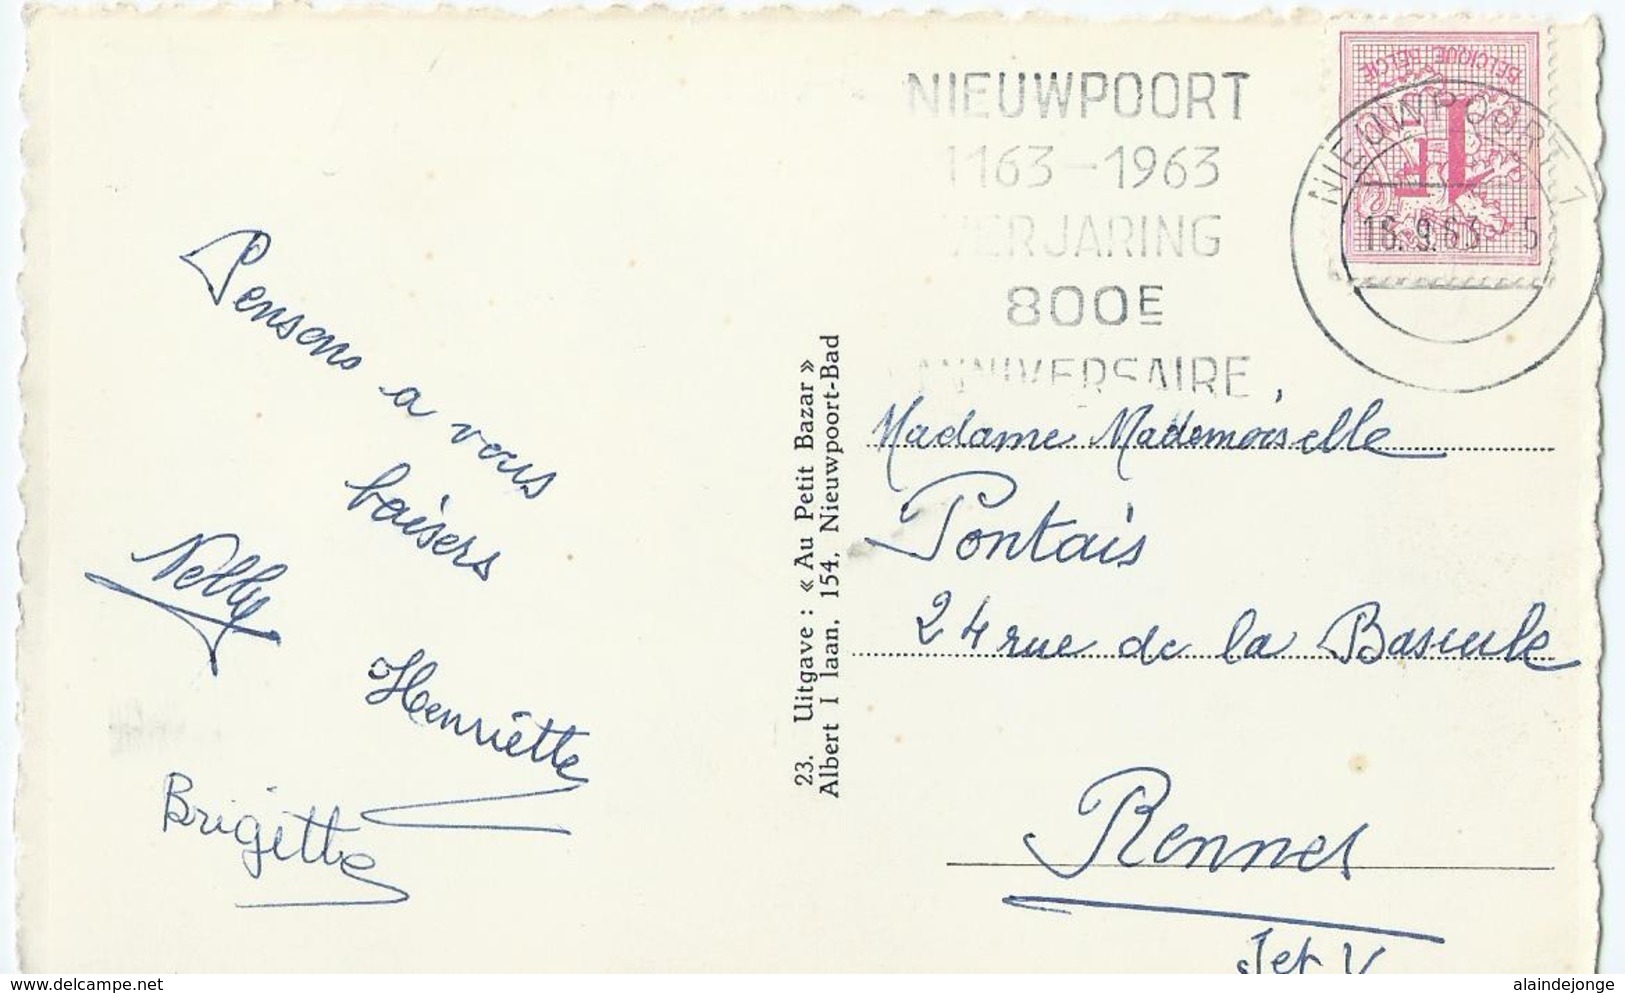 NIEUWPOORT
1163-1963
VERJARING
800E
ANNIVERSAIRE
BELGIQUE BELGIË
1F
NIEUWPOORT 1
16.9.63 5
Pensons a vous
baisers
Nelly
Henriette
Brigitte
23. Uitgave : « Au Petit Bazar »
Albert I laan, 154, Nieuwpoort-Bad
Madame Mademoiselle
Pontais
24 rue de la Bascule
Rennes
I et V
www.delcampe.net
alaindejonge